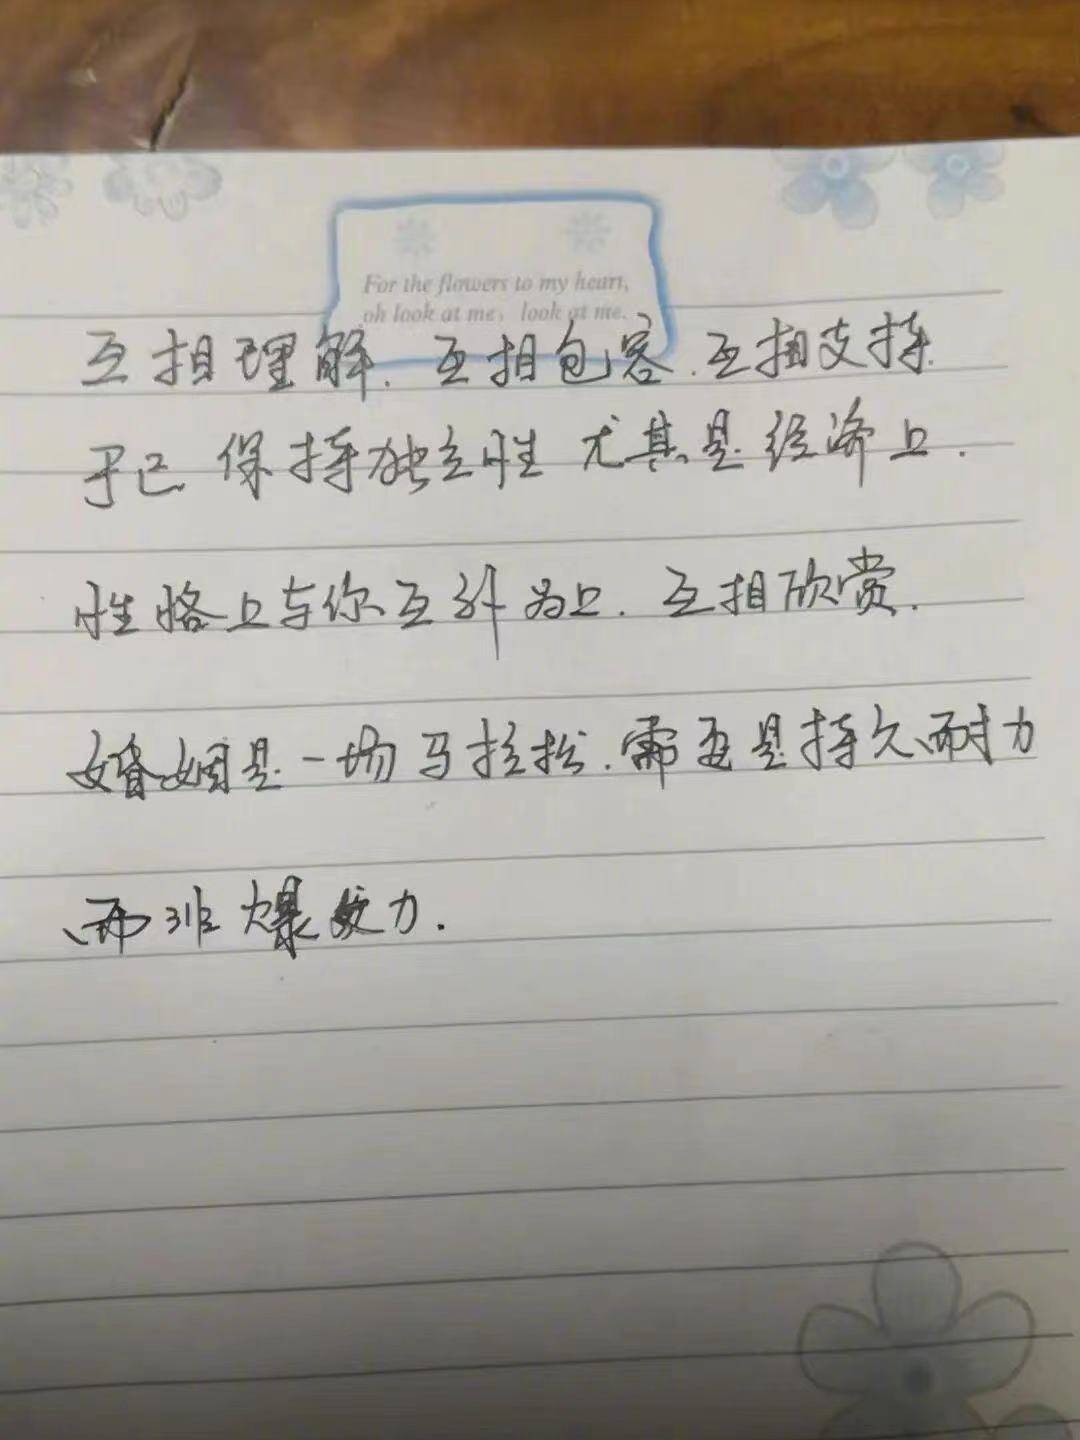 For the flowers to my heart,
oh look at me, look at me.
互相理解.互相包容.互相支持.
于己 保持独立性 尤其是经济上.
性格上与你互补为上.互相欣赏.
婚姻是一场马拉松.需要是持久耐力
而非爆发力.